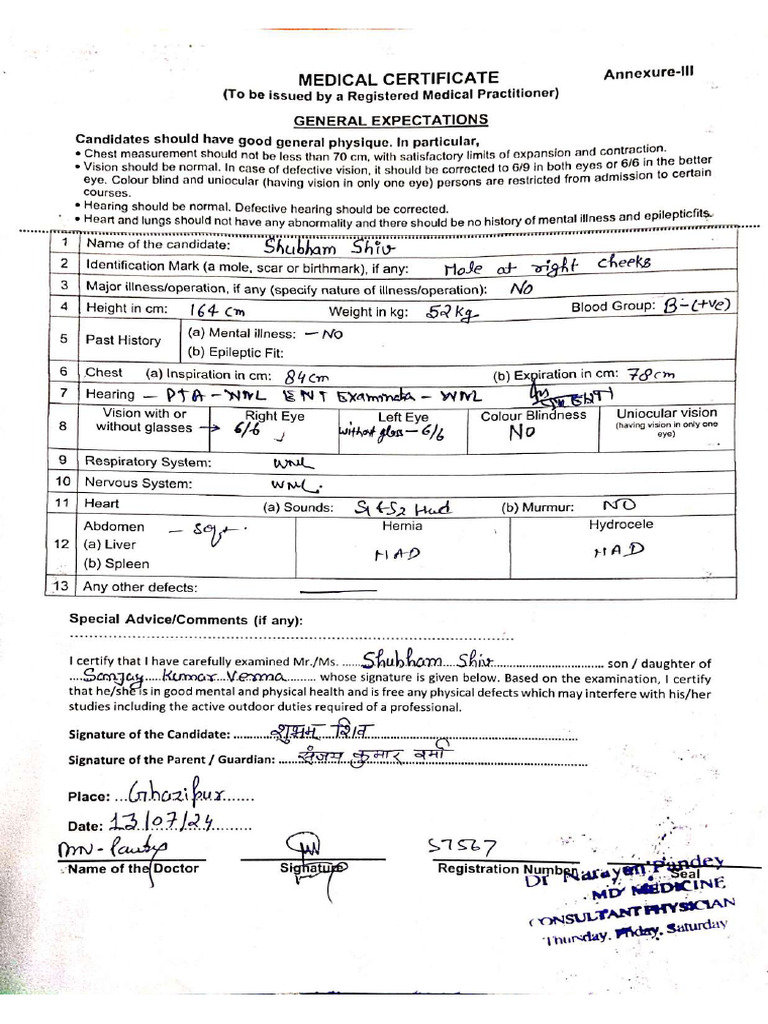 Annexure-III
MEDICAL CERTIFICATE
(To be issued by a Registered Medical Practitioner)
GENERAL EXPECTATIONS
Candidates should have good general physique. In particular,
• Chest measurement should not be less than 70 cm, with satisfactory limits of expansion and contraction.
• Vision should be normal. In case of defective vision, it should be corrected to 6/9 in both eyes or 6/6 in the better
eye. Colour blind and uniocular (having vision in only one eye) persons are restricted from admission to certain
courses.
• Hearing should be normal. Defective hearing should be corrected.
• Heart and lungs should not have any abnormality and there should be no history of mental illness and epilepticfits.
1 Name of the candidate: Shubham Shiv
2 Identification Mark (a mole, scar or birthmark), if any: Mole at right cheeks
3 Major illness/operation, if any (specify nature of illness/operation): No
4 Height in cm: 164 cm Weight in kg: 52 kg Blood Group: B-(+ve)
5 Past History (a) Mental illness: - No
(b) Epileptic Fit:
6 Chest (a) Inspiration in cm: 84cm (b) Expiration in cm: 78cm
7 Hearing - PTA - WNL ENT - WNL
8 Vision with or without glasses → Right Eye 6/6 Left Eye without glass - 6/6 Colour Blindness No Uniocular vision (having vision in only one eye)
9 Respiratory System: WNL
10 Nervous System: WNL.
11 Heart (a) Sounds: S1+S2 (b) Murmur: NO
12 Abdomen - Soft. Hernia Hydrocele
(a) Liver NAD NAD
(b) Spleen
13 Any other defects:
Special Advice/Comments (if any):
I certify that I have carefully examined Mr./Ms. Shubham Shiv son / daughter of
Sanjay Kumar Verma whose signature is given below. Based on the examination, I certify
that he/she is in good mental and physical health and is free any physical defects which may interfere with his/her
studies including the active outdoor duties required of a professional.
Signature of the Candidate: शुभम शिव
Signature of the Parent / Guardian: संजय कुमार वर्मा
Place: Ghazipur
Date: 13/07/24
57567
Name of the Doctor Signature Registration Number Seal
Dr Narayan Pandey
MD MEDICINE
CONSULTANT PHYSICIAN
Thursday, Friday, Saturday